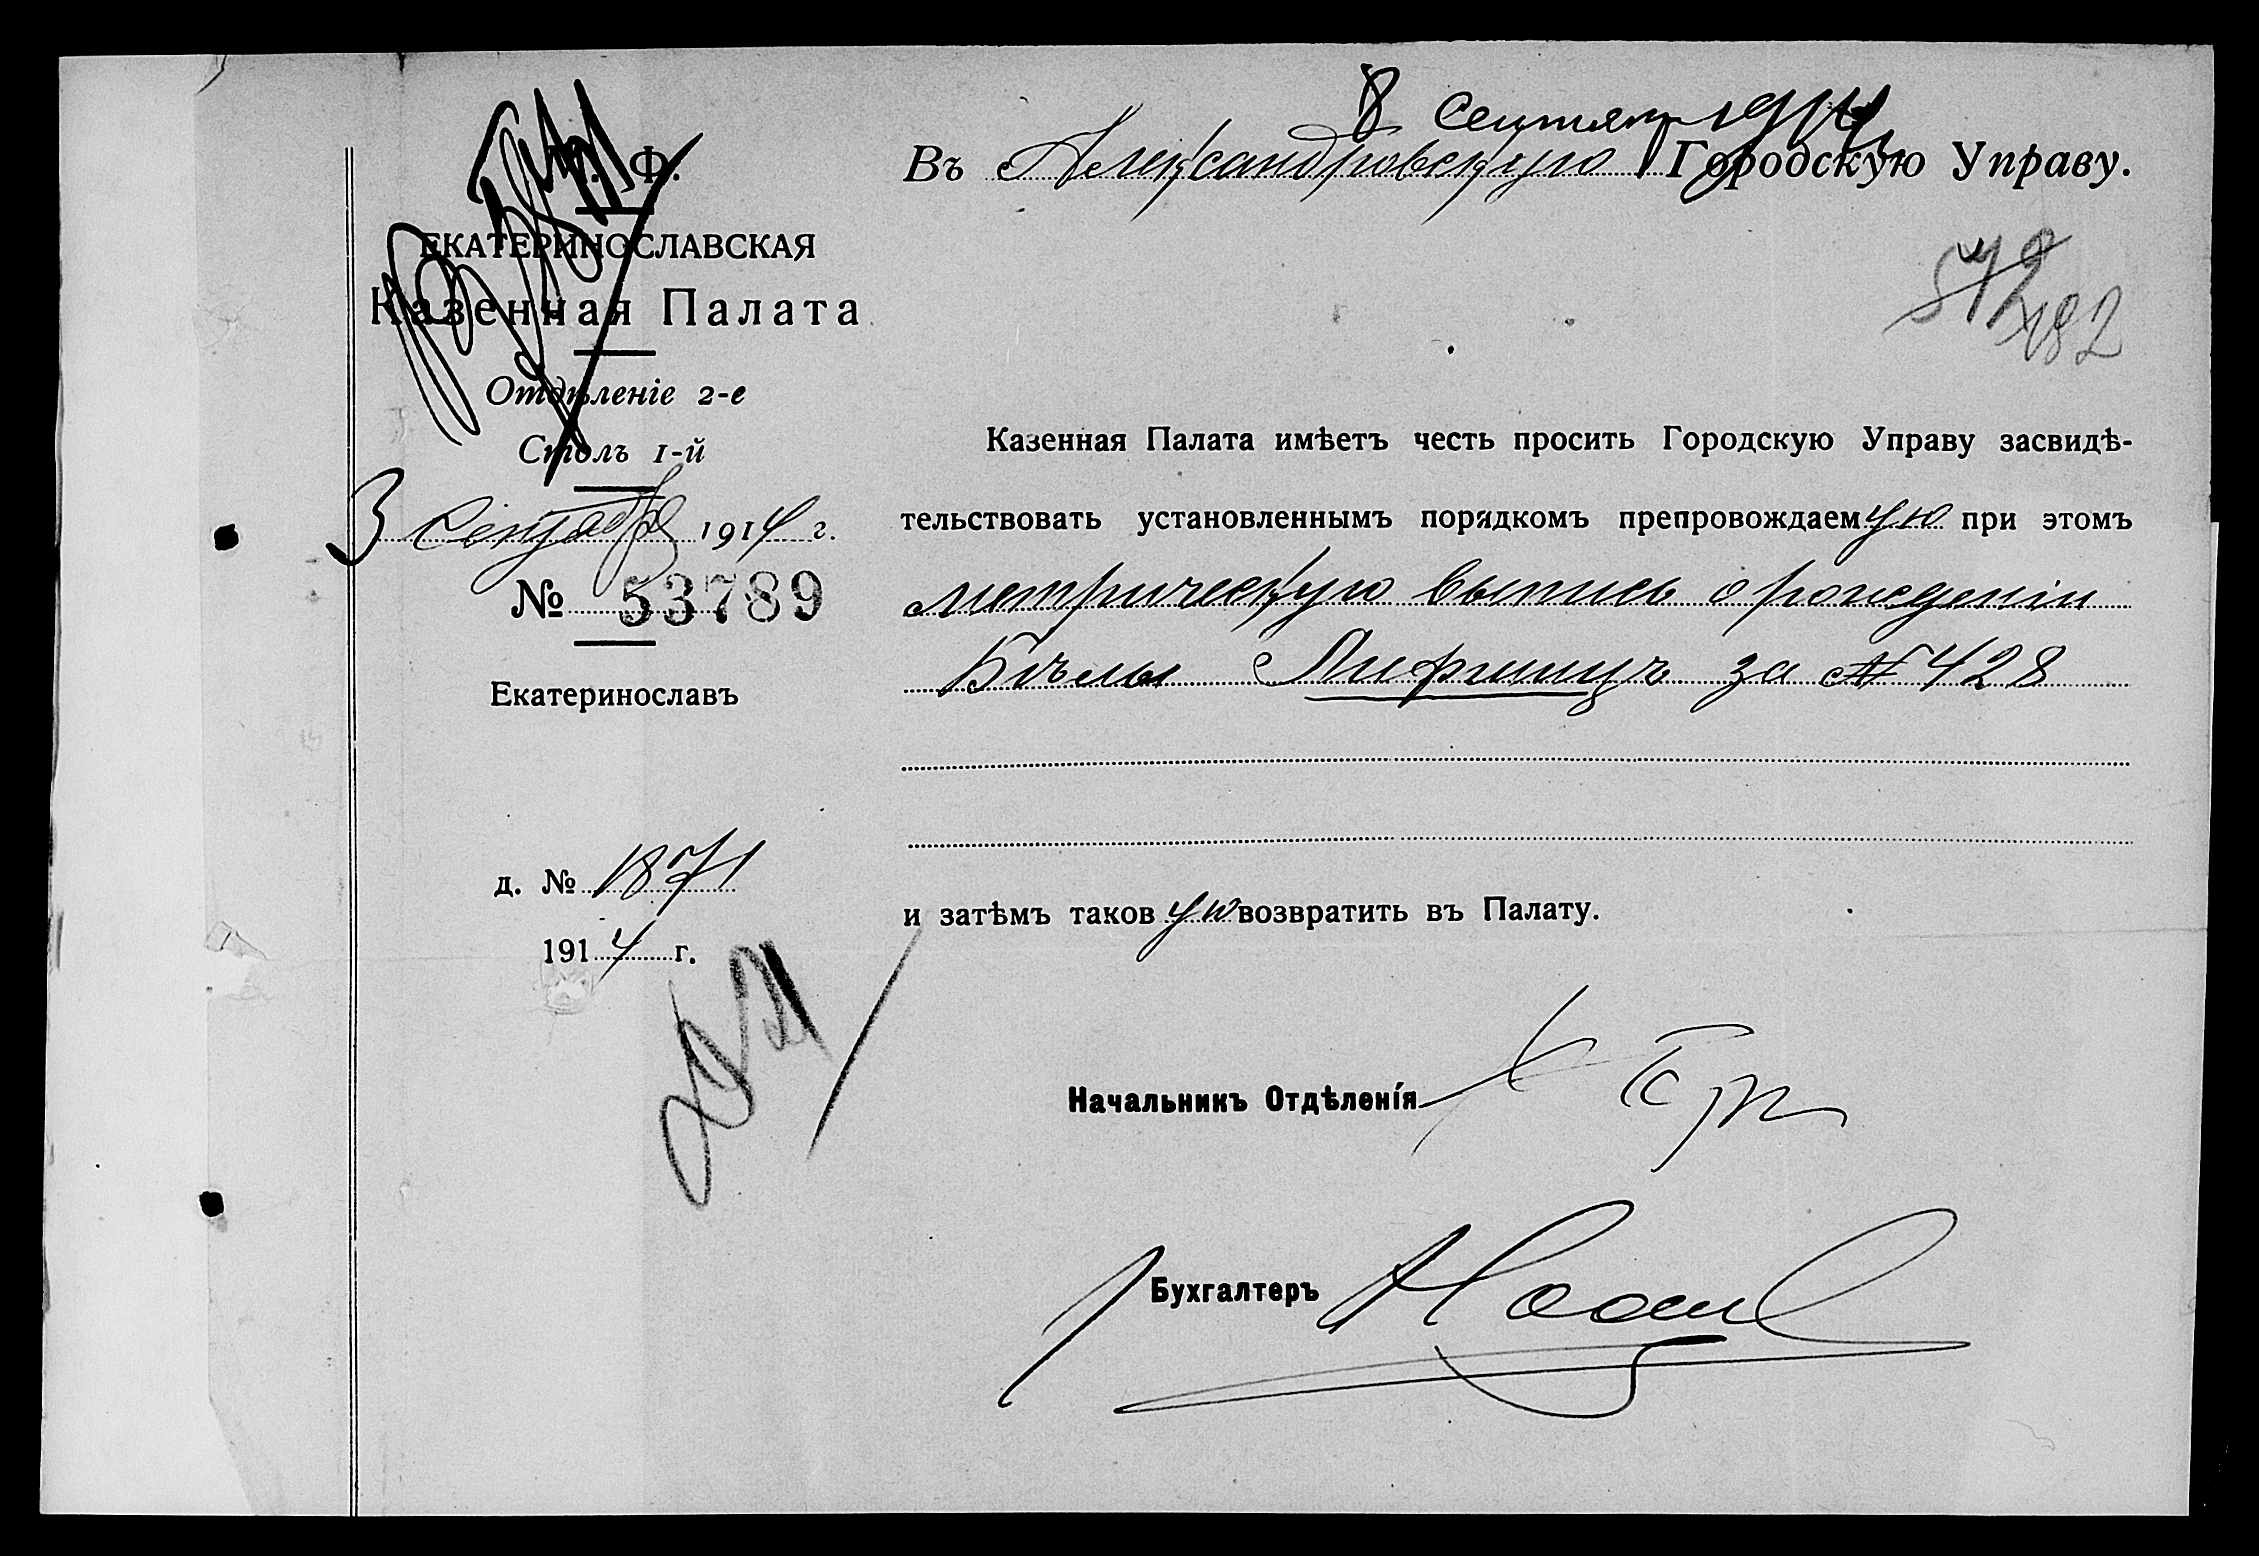 Ф.
ЕКАТЕРИНОСЛАВСКАЯ
Казенная Палата
Отдѣленіе 2-е
Столъ 1-й
3 Сентября 1914 г.
№ 53789
Екатеринославъ
д. № 1871
1914 г.
8 Сентября 1914
Въ Александровскую Городскую Управу.
482
Казенная Палата имѣетъ честь просить Городскую Управу засвидѣ-
тельствовать установленнымъ порядкомъ препровождаемую при этомъ
метрическую выпись о рожденіи
Бѣлы Лифшицъ за № 428
и затѣмъ таковую возвратить въ Палату.
Начальникъ Отдѣленія
Бухгалтеръ